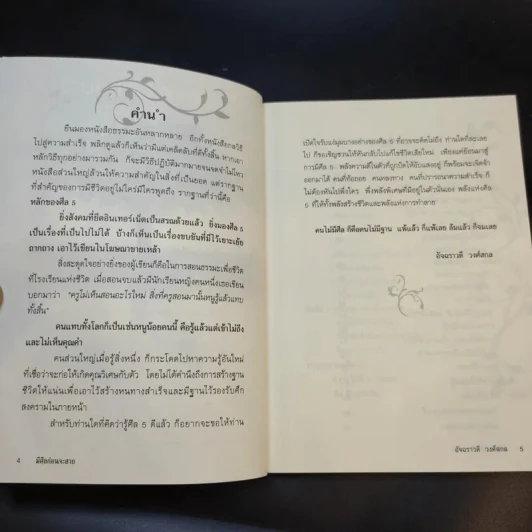 คำนำ
ยืนมองหนังสือธรรมะอันหลากหลาย อีกทั้งหนังสือกลวิธี
ไปสู่ความสำเร็จ พลิกดูแล้วก็เห็นว่ามีแต่เคล็ดลับที่ดีทั้งสิ้น หากเอา
หลักวิธีทุกอย่างมารวมกัน ก็จะมีวิธีปฏิบัติมากมายจนจดจำไม่ไหว
หนังสือส่วนใหญ่ล้วนให้ความสำคัญในสิ่งที่เป็นยอด แต่รากฐาน
ที่สำคัญของการมีชีวิตอยู่ไม่ใคร่มีใครพูดถึง รากฐานที่ว่านี้คือ
หลักของศีล ๕
ยิ่งสังคมที่ยึดอินเทอร์เน็ตเป็นสรณด้วยแล้ว ยิ่งมองศีล ๕
เป็นเรื่องที่เป็นไปไม่ได้ บ้างก็เห็นเป็นเรื่องขบขันที่มีไว้เยาะเย้ย
ถากถาง เอาไว้เขียนในโฆษณาขายเหล้า
สิ่งสะดุดใจอย่างยิ่งของผู้เขียนก็คือในการสอนธรรมะเพื่อชีวิต
ที่โรงเรียนแห่งชีวิต เมื่อสอนจบแล้วมีนักเรียนหญิงคนหนึ่งเธอเขียน
บอกมาว่า "ครูไม่เห็นสอนอะไรใหม่ สิ่งที่ครูสอนมานั้นหนูรู้แล้วแทบ
ทั้งสิ้น"
คนแทบทั้งโลกก็เป็นเช่นหนูน้อยคนนี้ คือรู้แล้วแต่เข้าไม่ถึง
และไม่เห็นคุณค่า
คนส่วนใหญ่เมื่อรู้สิ่งหนึ่ง ก็กระโดดไปหาความรู้อันใหม่
ที่เชื่อว่าจะก่อให้เกิดคุณวิเศษกับตัว โดยไม่ได้คำนึงถึงการสร้างฐาน
ชีวิตให้แน่นเพื่อเอาไว้สร้างหนทางสำเร็จและมีฐานไว้รองรับศึก
สงครามในภายหน้า
สำหรับท่านใดที่คิดว่ารู้ศีล ๕ ดีแล้ว ก็อยากจะขอให้ท่าน
4 มีศีลก่อนจะสาย
เปิดใจรับแง่มุมบางอย่างของศีล ๕ ที่อาจจะคิดไม่ถึง ท่านใดที่ละเลย
ไป ก็ขอเชิญชวนให้หันกลับไปแก้ไขชีวิตเสียใหม่ เพียงแค่ยึดมั่นอยู่
การมีศีล ๕ พลังความดีในตัวที่ถูกปิดให้อับแสงอยู่ ก็พร้อมจะเจิดจ้า
ออกมาได้ คนที่ท้อถอย คนหลงทาง คนที่ปรารถนาความสำเร็จ ก็
ไม่ต้องหันไปพึ่งใคร พึ่งพลังพิเศษที่มีอยู่ในตัวนั่นเอง พลังแห่งศีล
๕ ที่ให้ทั้งพลังสร้างชีวิตและพลังแห่งการทำลาย
คนไม่มีศีล ก็คือคนไม่มีฐาน แพ้แล้ว ก็แพ้เลย ล้มแล้ว ก็จมเลย
อัจฉราวดี วงศ์สกล
อัจฉราวดี วงศ์สกล 5